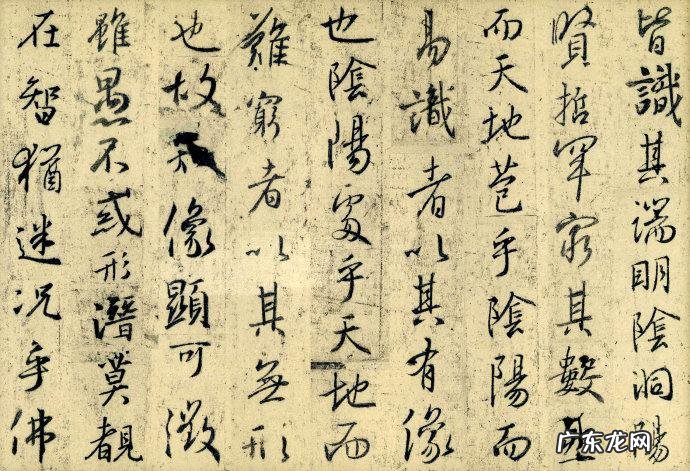 皆識其端明陰洞陽
賢哲罕窮其數然
而天地苞乎陰陽而
易識者以其有像
也陰陽處乎天地而
難窮者以其無形
也故知像顯可徵
雖愚不惑形潛莫覩
在智猶迷況乎佛
广东龙网